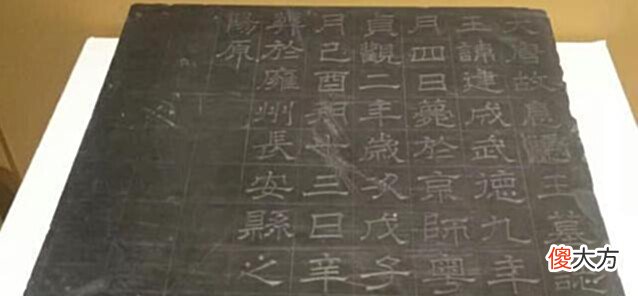 大唐故息隱王墓誌
王諱建成武德九年
月四日薨於京師粤
貞觀二年歲次戊子
月己酉朔十三日辛
葬於雍州長安縣之
陽原
傻大方